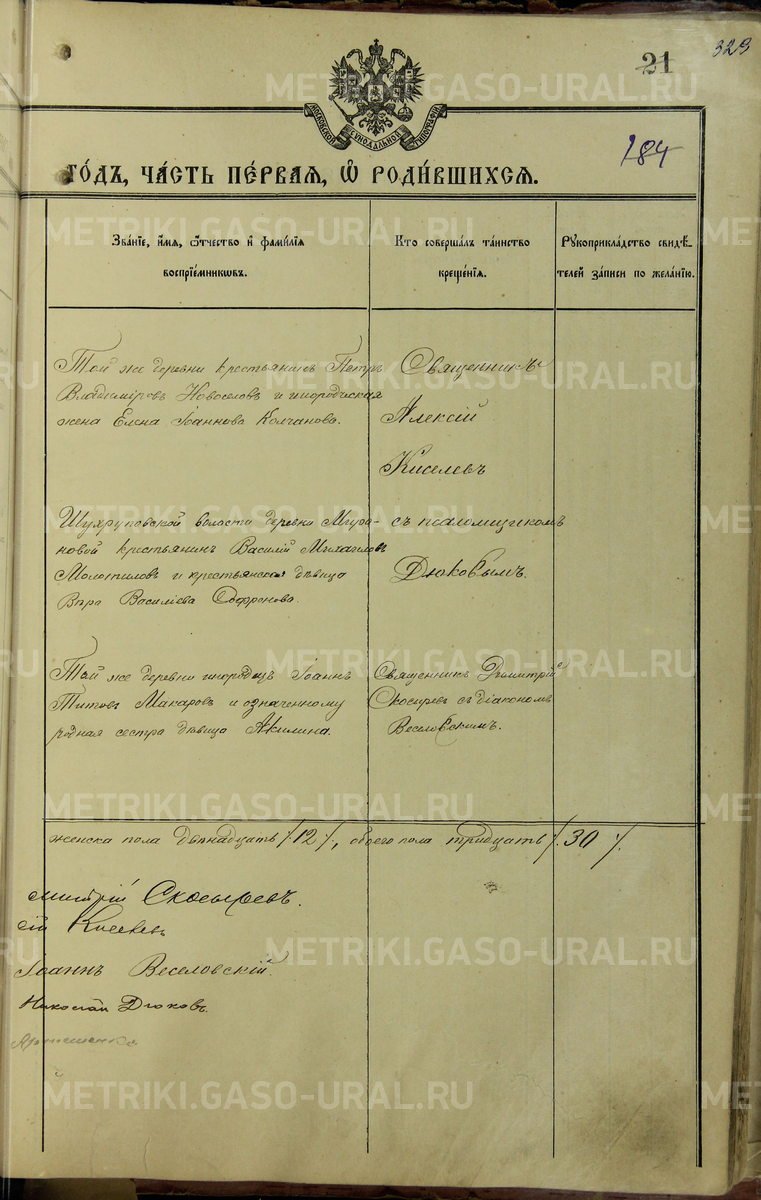 323
21
184
МОСКОВСКОЙ СѴНОДАЛЬНОЙ ТИПОГРАФІИ
METRIKI.GASO-URAL.RU
ГО́ДЪ, ЧА́СТЬ ПЕ́РВАЯ, Ѽ РОДИ́ВШИХСЯ.
Зва́нїе, и́мя, ѻ҆́тчество и҆ фами́лїя
воспрїе́мникѡвъ.
Кто̀ соверша́лъ та́инство
креще́нїя.
Рꙋкоприкла́дство свидѣ́-
телей за́писи по жела́нїю.
Той же деревни крестьянинъ Петръ
Владиміровъ Новоселовъ и инородческая
жена Елена Іоаннова Колчанова.
Священникъ
Алексій
Киселевъ
Шухруповской волости деревни
новой крестьянинъ Василій Михаиловъ
Молотиловъ и крестьянская дѣвица
Вѣра Василіева Софронова.
съ псаломщикомъ
Дюковымъ.
Той же деревни инородецъ Іоаннъ
Титовъ Макаровъ и означенному
родная сестра дѣвица Акилина.
Священникъ Димитрій
Скосыревъ съ діакономъ
Веселовскимъ.
женска пола двѣнадцать /12/, обоего пола тридцать /30/.
митрій Скосыревъ.
сій Киселевъ
Іоаннъ Веселовскій.
Николай Дюковъ.